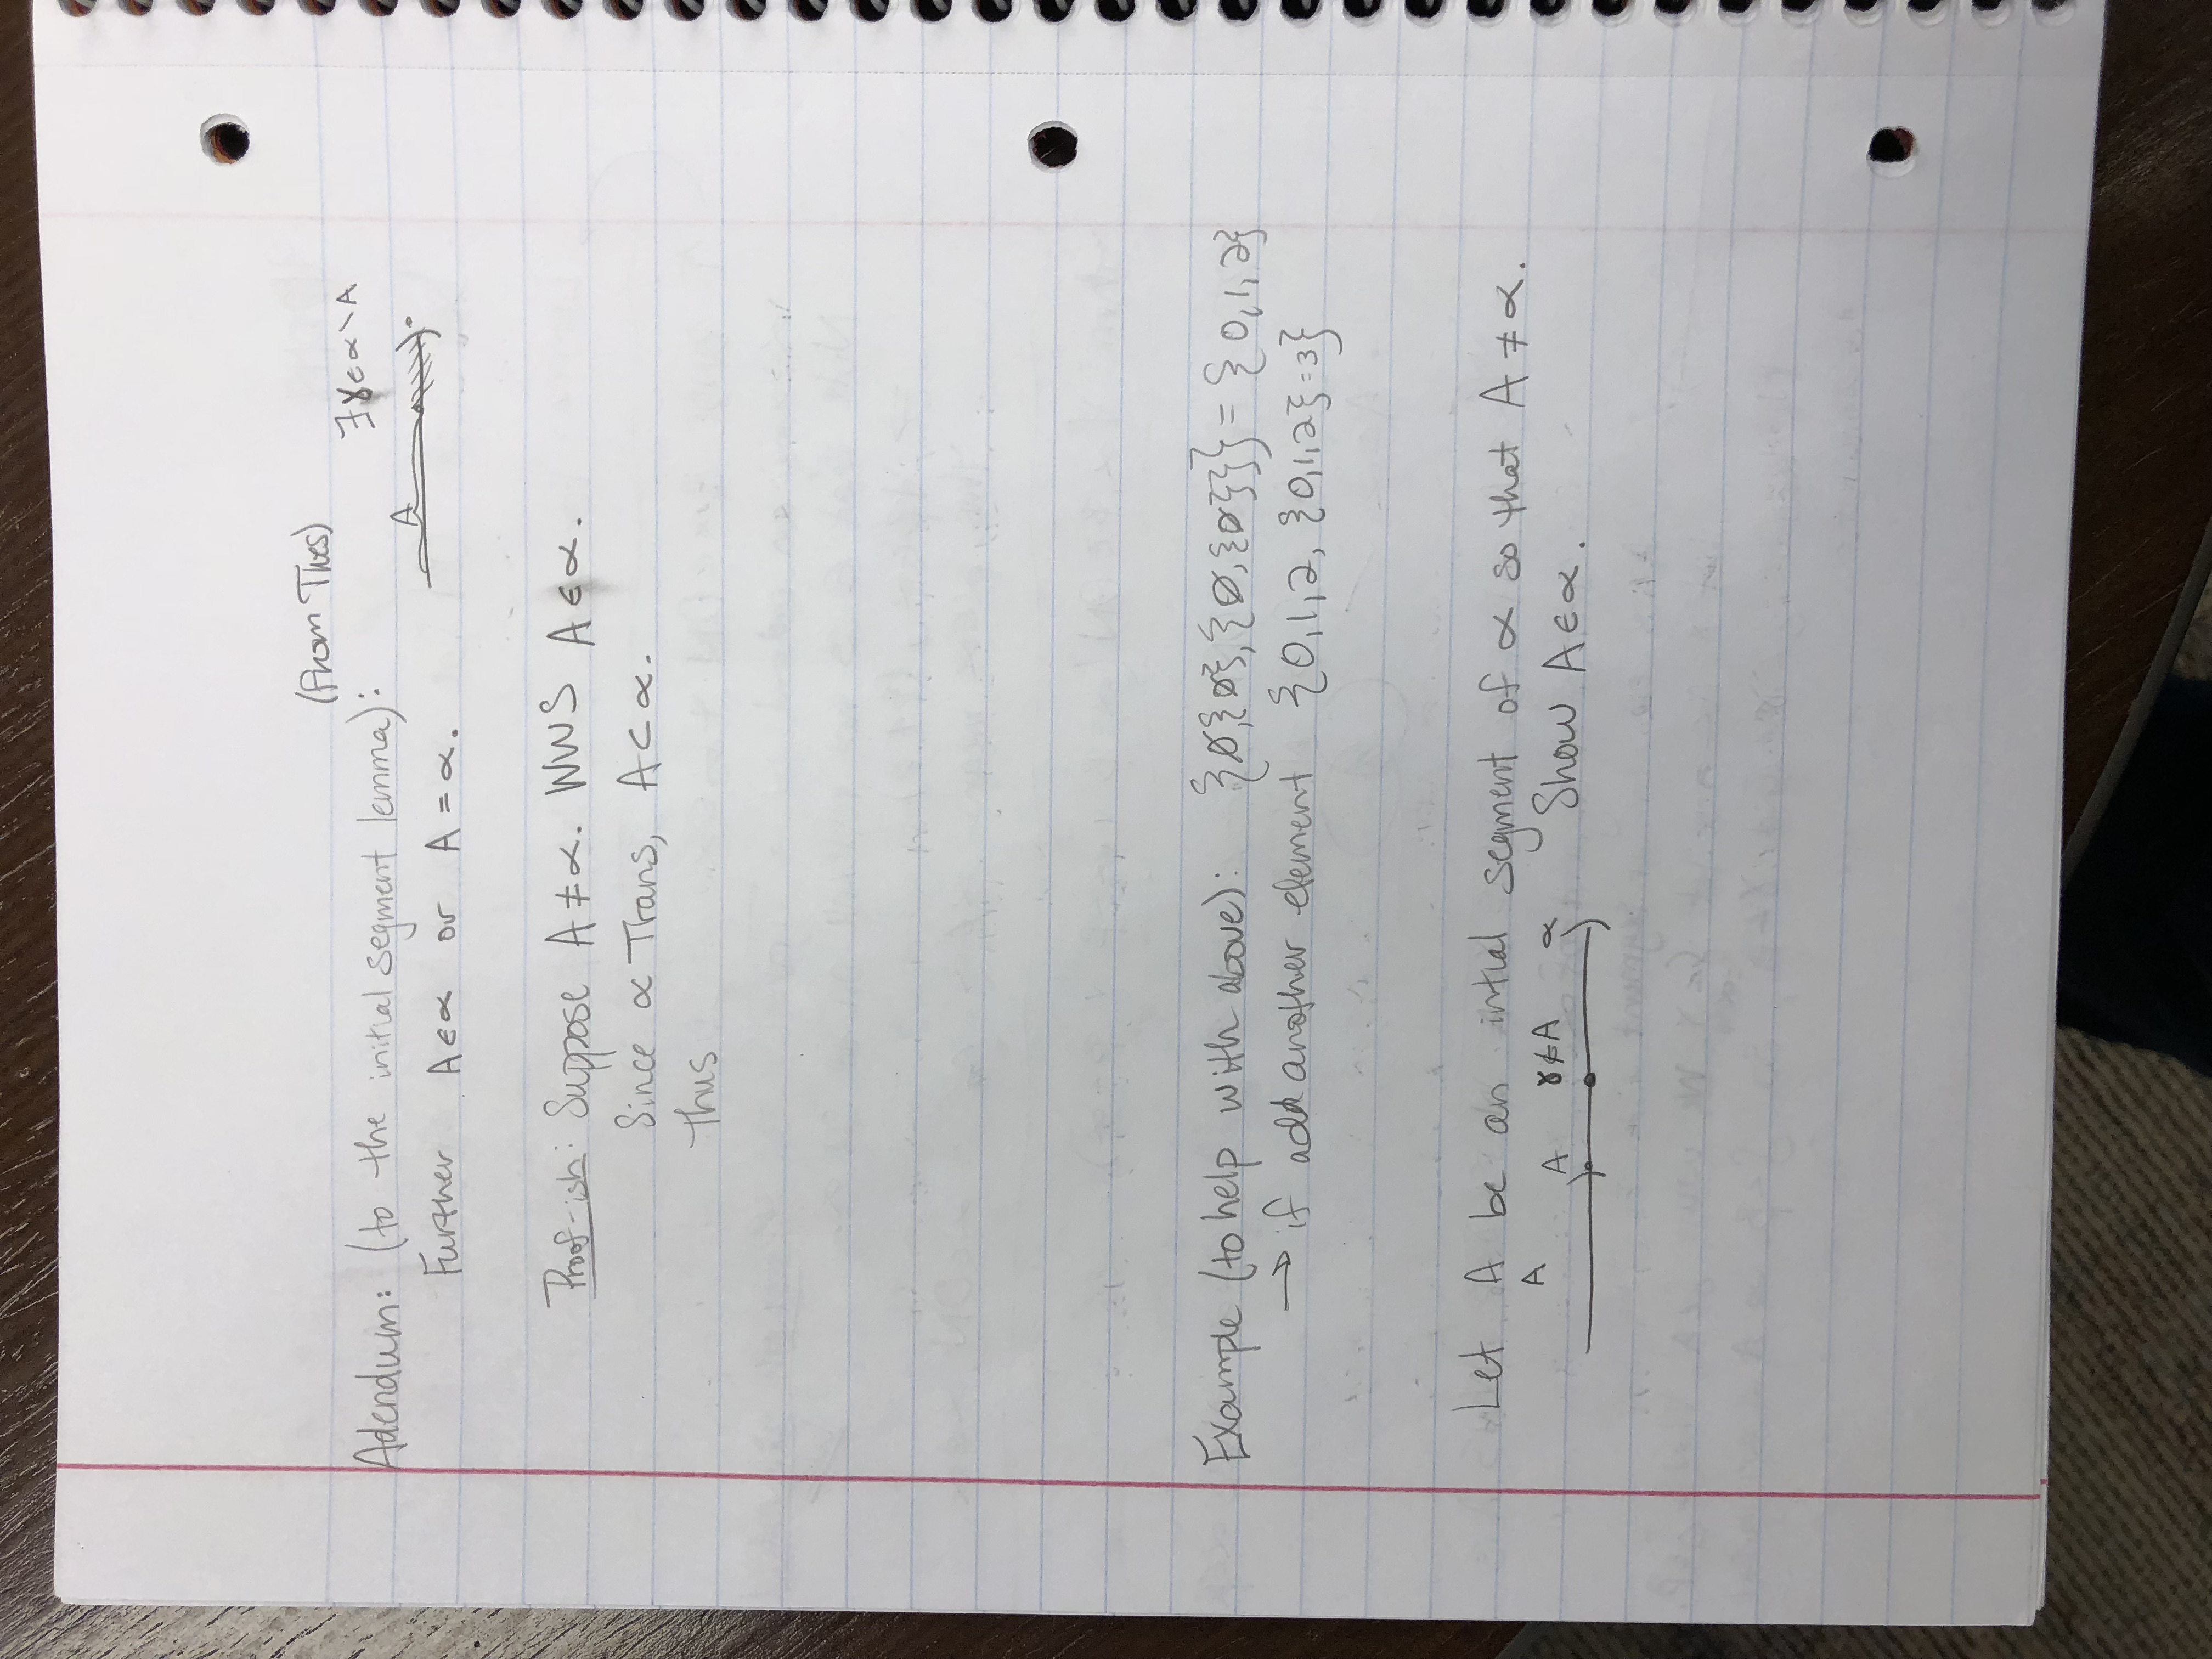 (from Thes)
Adendum: (to the initial segment lemma):
∃γ∈α∖A
A
Further A∈α or A=α.
Proof-ish: Suppose A≠α. WWS A∈α.
Since α Trans, A⊂α.
Thus
Example (to help with above): {∅,{∅},{∅,{∅}}} = {0,1,2}
→ if add another element {0,1,2, {0,1,2}=3}
Let A be an intial segment of α so that A≠α.
A A γ∉A α Show A∈α.